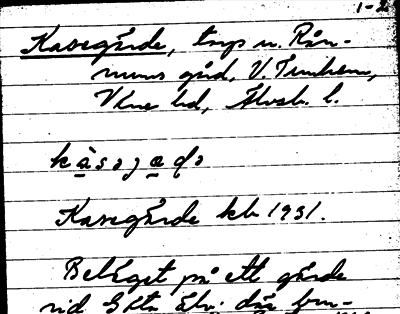 1-2
Kasegärde, torp u. Rån-
nums gård, V. Tunhem,
Väne hd, Älvsb. l.
kàsəjædə
Kasegärde kb 1931.
Beläget på ett gärde
vid Göta älv. där